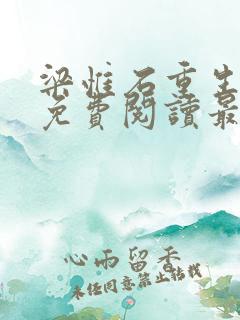 梁惟石重生
免費閱讀最
心雨留香
未经同意禁止转载